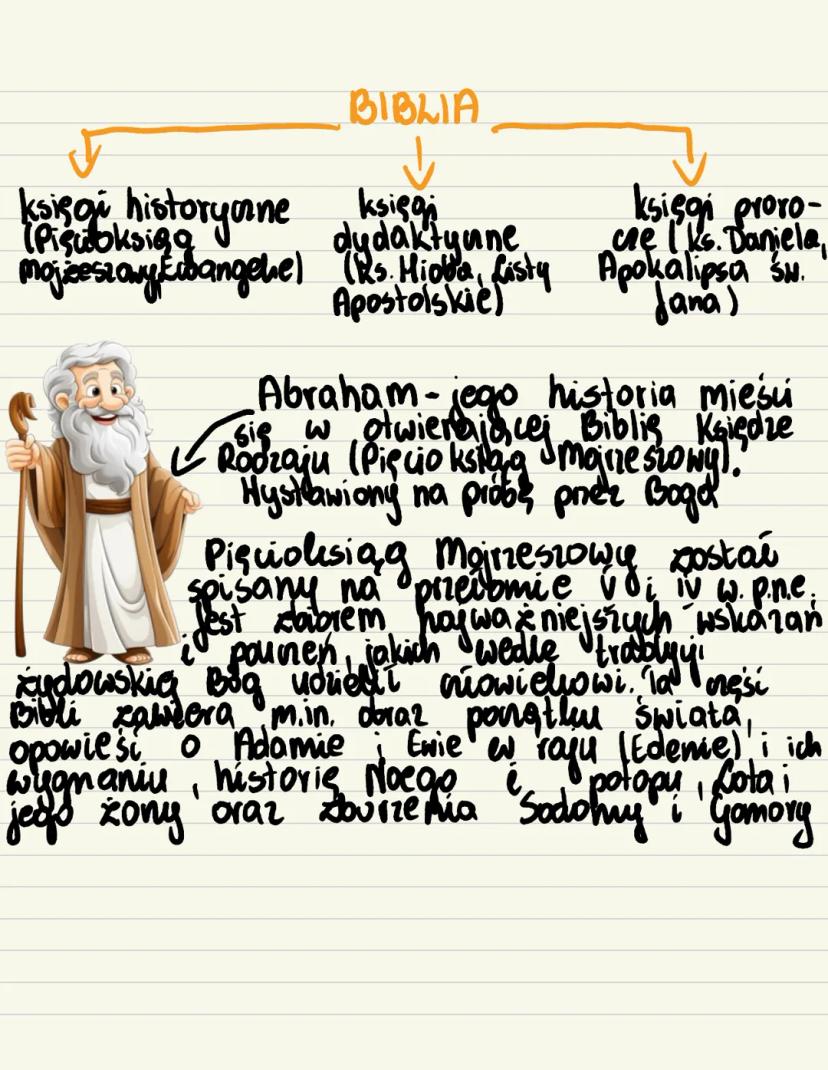 BIBLIA
księgi historyczne
(Pięcioksiąg
mojżeszowy, Ewangelie)
księgi
dydaktyczne
(ks. Hioba, Listy
Apostolskie)
księgi proro-
cze (ks. Daniela,
Apokalipsa św.
Jana)
Abraham - jego historia mieści
się w otwierającej Biblię Księdze
Rodzaju (Pięcioksiąg Mojżeszowy).
Wystawiony na próbę przez Boga
Pięcioksiąg Mojrzeszowy został
spisany na przełomie V i IV w. p.n.e.
Jest zbiorem najważniejszych wskazań
i pouczeń, jakich wedle tradycji
żydowskiej Bóg udzielił człowiekowi. Ta część
Bibli zawiera m.in. obraz początku świata,
opowieść o Adamie i Ewie w raju (Edenie) i ich
wygnaniu, historię Noego i potopu, Lota i
jego żony oraz zburzenia Sodomy i Gomory